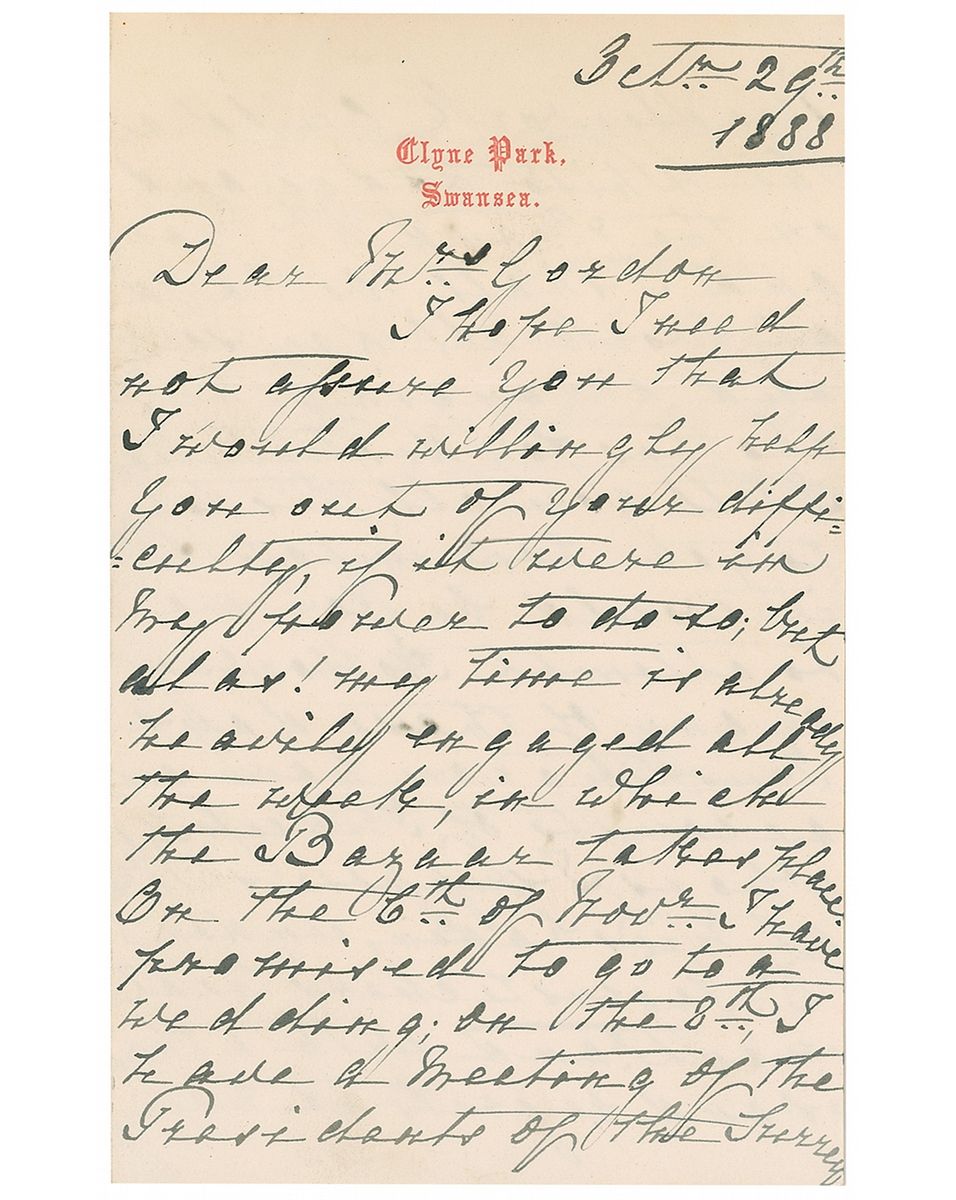 Octr 29th
1888
Clyne Park,
Swansea.
Dear Mrs Gordon
I hope I need
not assure you that
I would willingly help
you out of your diffi=
=culty, if it were in
my power to do so; but
alas! my time is already
heavily engaged all
the week, in which
the Bazaar takes place.
On the 6th of Novr I have
promised to go to a
wedding; on the 8th, I
have a Meeting of the
Presidents of the Surrey